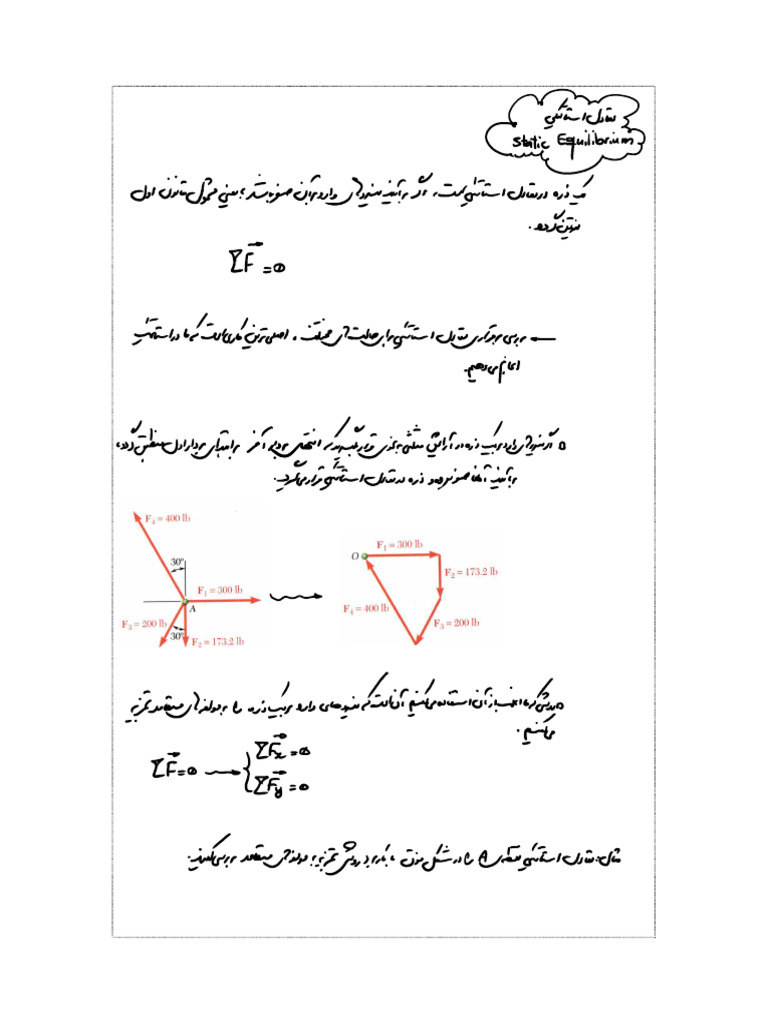 تعادل استاتیکی
Static Equilibrium
یک ذره در تعادل استاتیکی است، اگر برآیند نیروهای وارد بر آن صفر باشد؛ یعنی مشمول قانون اول
نیوتن گردد.
ΣF = 0
← بررسی برقراری تعادل استاتیکی برای حالت‌های مختلف، اصلی‌ترین کاری است که ما در استاتیک
انجام می‌دهیم.
اگر نیروهای وارد بر یک ذره در آرایش مثلثی به نحوی قرار گیرند که انتهای بردار آخر بر ابتدای بردار اول منطبق گردد،
برآیند آنها صفر بوده و ذره در تعادل استاتیکی قرار می‌گیرد.
F4 = 400 lb
30°
F1 = 300 lb
A
F3 = 200 lb
30°
F2 = 173.2 lb
O
F1 = 300 lb
F2 = 173.2 lb
F4 = 400 lb
F3 = 200 lb
روشی که ما اغلب از آن استفاده می‌کنیم آن است که نیروهای وارد بر یک ذره را به مولفه‌های متعامد تجزیه
می‌کنیم.
ΣF = 0 → { ΣFx = 0
ΣFy = 0
مثال: تعادل استاتیکی نقطه‌ی A را در شکل فوق، با کاربرد روش تجزیه به مولفه‌های متعامد بررسی کنید.